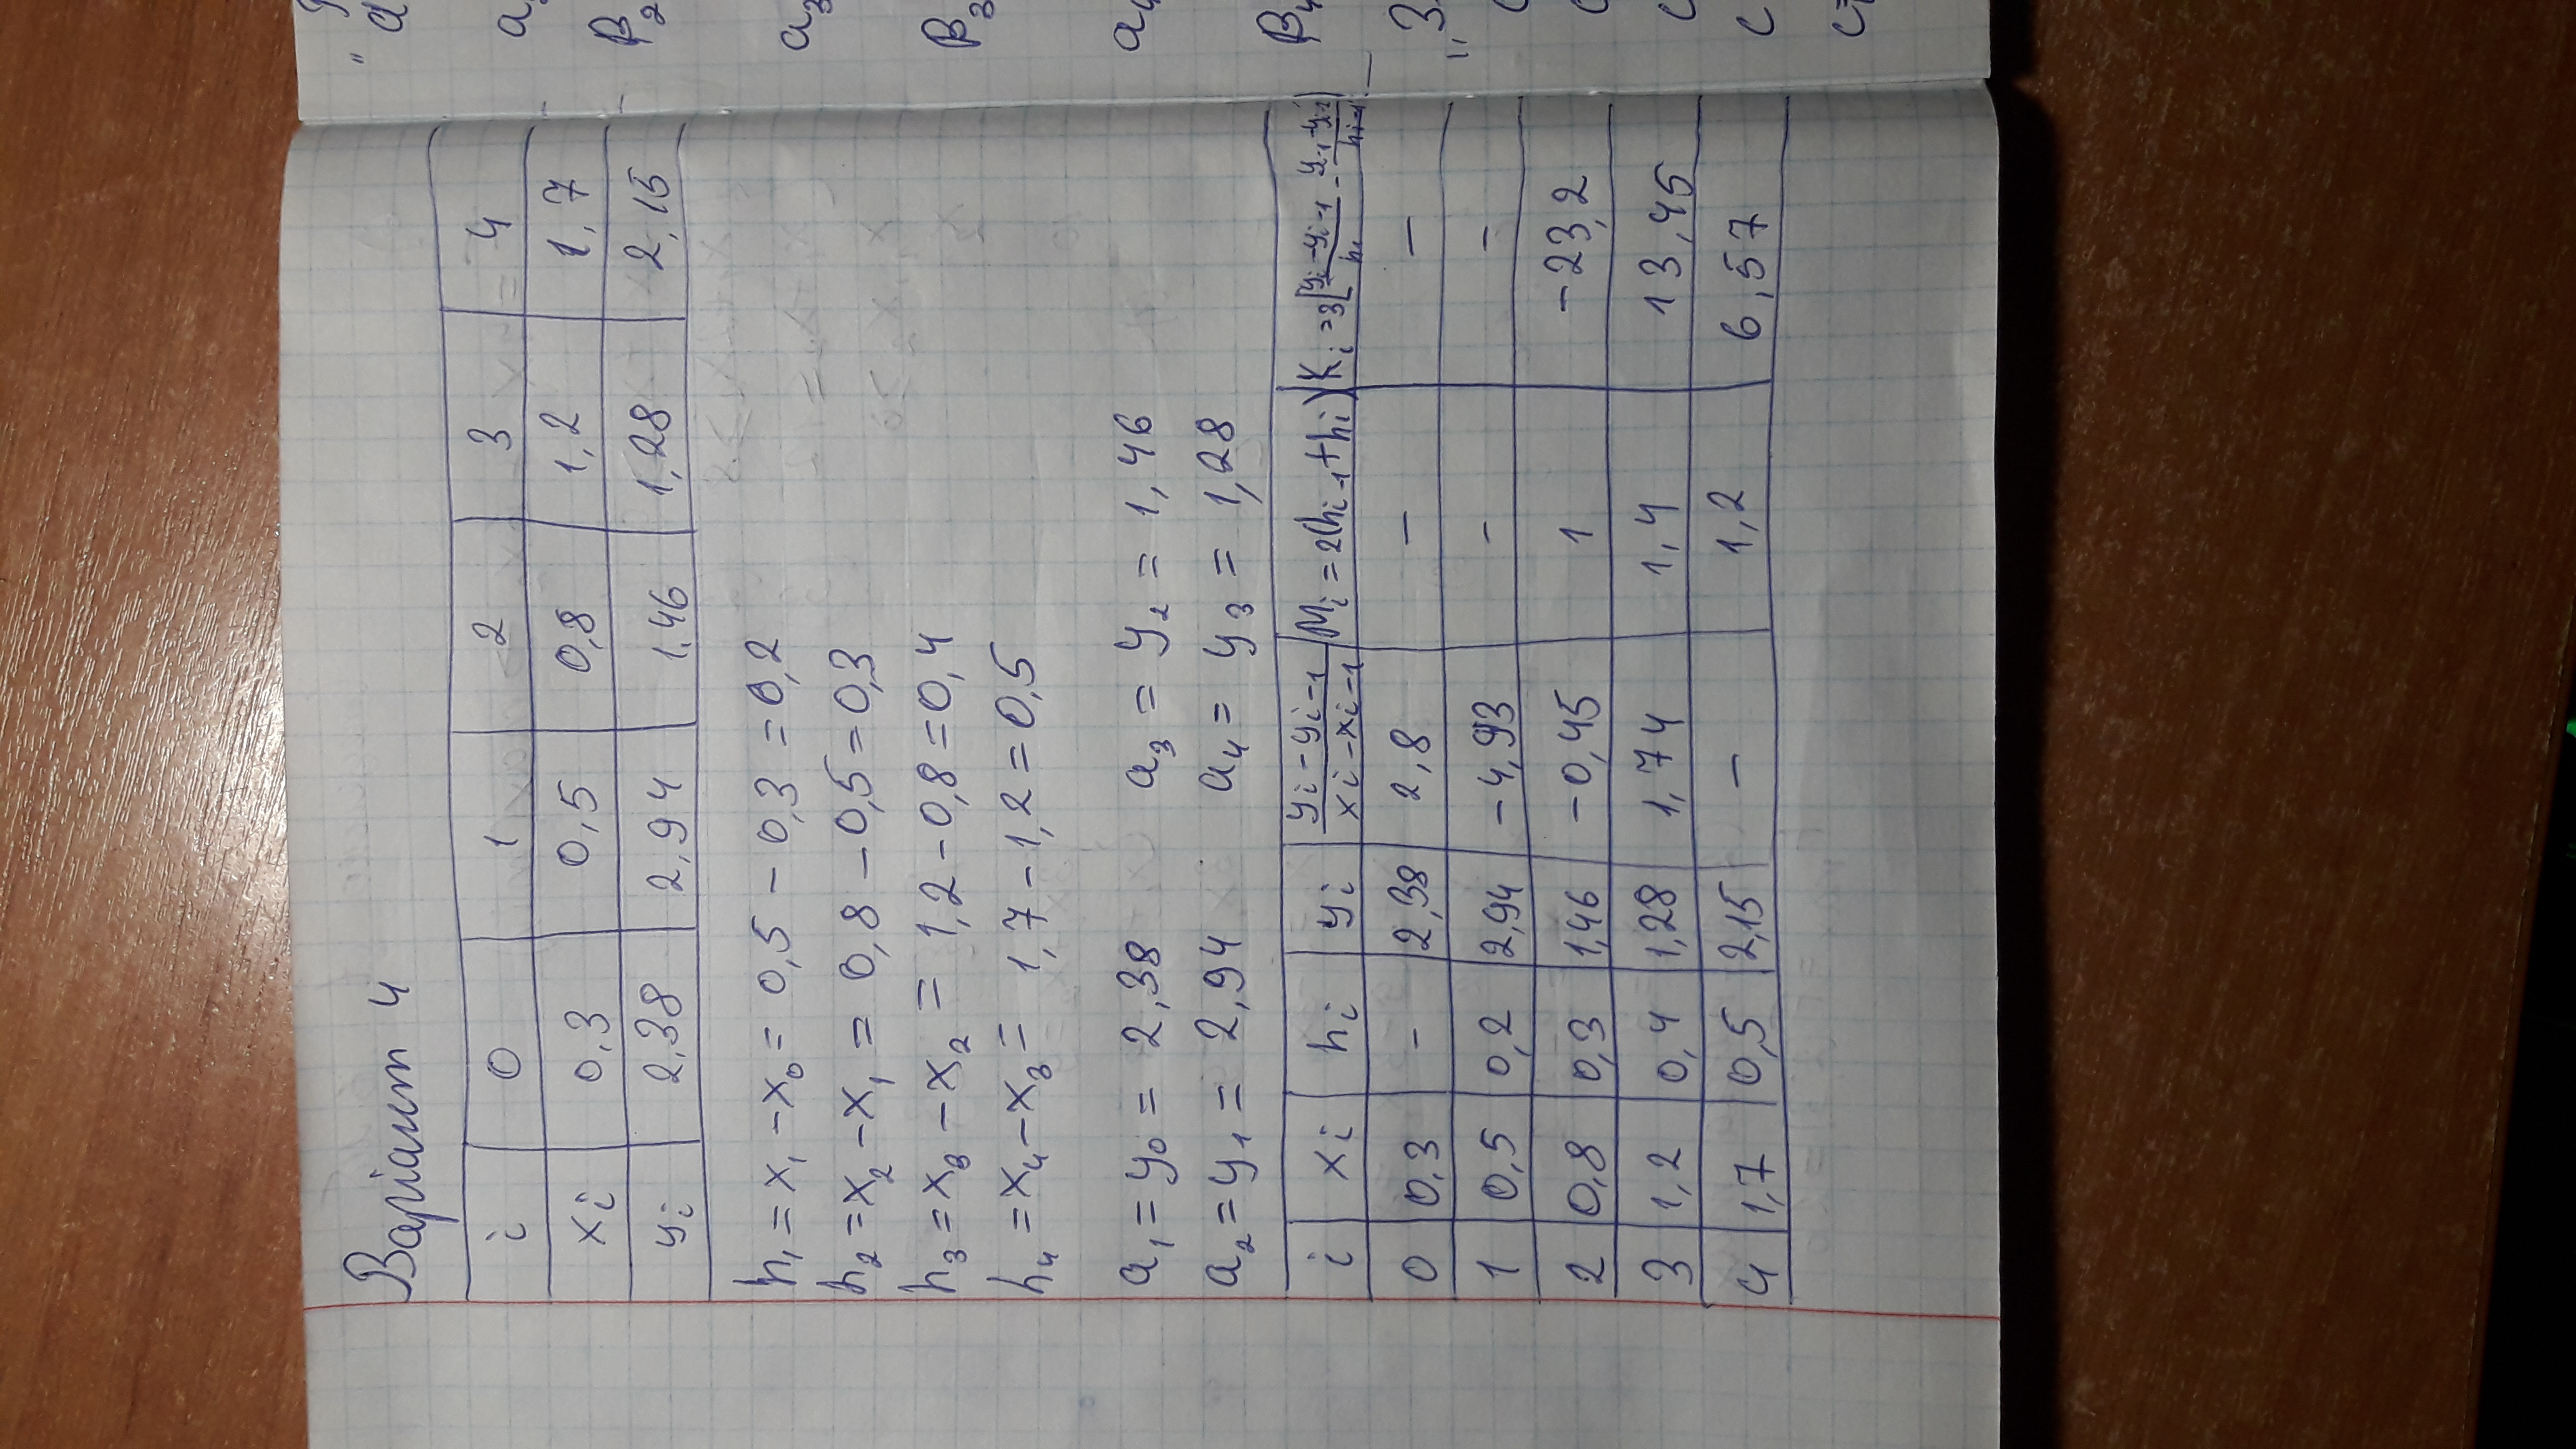 Варіант 4
i 0 1 2 3 4
xi 0,3 0,5 0,8 1,2 1,7
yi 2,38 2,94 1,46 1,28 2,15
h₁ = x₁ - x₀ = 0,5 - 0,3 = 0,2
h₂ = x₂ - x₁ = 0,8 - 0,5 = 0,3
h₃ = x₃ - x₂ = 1,2 - 0,8 = 0,4
h₄ = x₄ - x₃ = 1,7 - 1,2 = 0,5
a₁ = y₀ = 2,38 a₃ = y₂ = 1,46
a₂ = y₁ = 2,94 a₄ = y₃ = 1,28
i xi hi yi (yi - yi-1)/(xi - xi-1) Mi = 2(hi-1 + hi) Ki = 3[(yi - yi-1)/hi - (yi-1 - yi-2)/hi-1]
0 0,3 - 2,38 2,8 - -
1 0,5 0,2 2,94 -4,93 - -
2 0,8 0,3 1,46 -0,45 1 -23,2
3 1,2 0,4 1,28 1,74 1,4 13,45
4 1,7 0,5 2,15 - 1,2 6,57
d
a
β₂
a₃
β₃
a₄
β₄
„З
c
c